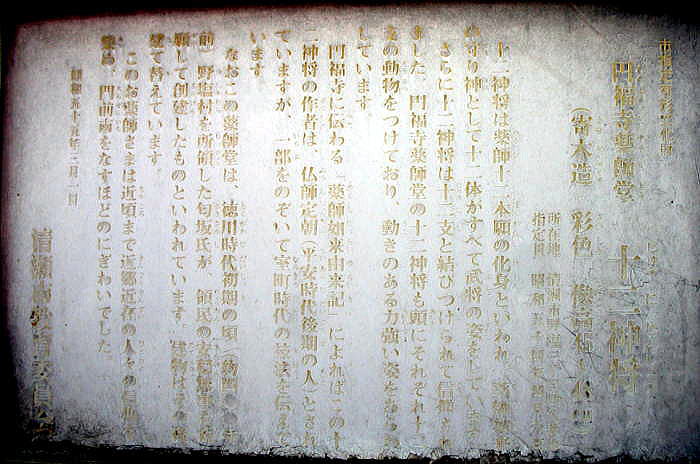 市指定有形文化財
円福寺薬師堂 十二神将
(寄木造 彩色 像高
所在地 清瀬市野塩
指定日 昭和五十
十二神将は薬師十二本願の化身といわれ、
守り神として十二体がすべて武将の姿をしていま
さらに十二神将は十二支と結びつけられて信仰され
ました。円福寺薬師堂の十二神将も頭にそれぞれ十二
支の動物をつけており、動きのある力強い姿を
しています。
円福寺に伝わる「薬師如来由来記」によればこの十
二神将の作者は、仏師定朝(平安時代後期の人)とされ
ていますが、一部をのぞいて室町時代の
います。
なおこの薬師堂は、徳川時代初期の頃(約四
前)野塩村を所領した匂坂氏が、領民の
願して創建したものといわれています。建物は
建て替えています。
このお薬師さまは近頃まで近郷近在の人々の信仰を
集め、門前市をなすほどのにぎわいでした。
昭和五十五年三月一日
清瀬市教育委員会